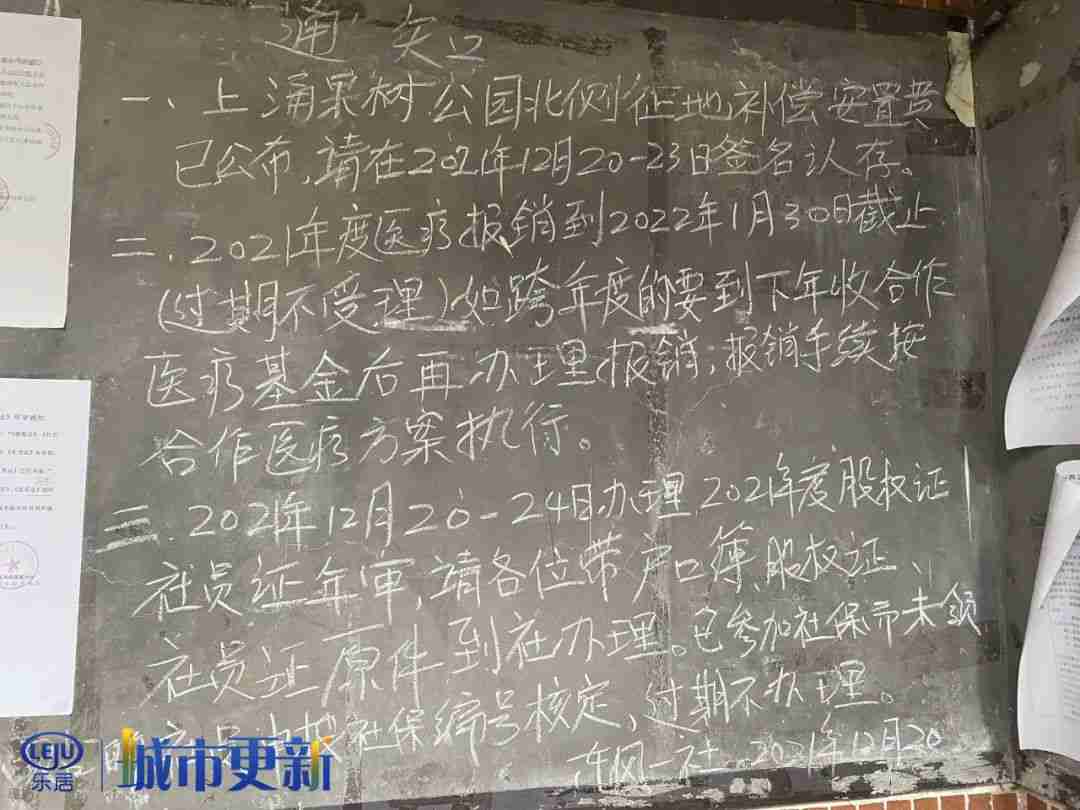 通知
一、上涌果树公园北侧征地补偿安置费
已公布,请在2021年12月20-23日签名认存。
二.2021年度医疗报销到2022年1月30日截止
(过期不受理)如跨年度的要到下年收合作
医疗基金后再办理报销;报销手续按
合作医疗方案执行。
三.2021年12月20-24日办理2021年度股权证
社员证年审,请各位带户口簿、股权证、
社员证原件到社办理。已参加社保而未领
社保编号核定,过期不办理。
东风一社 2021年12月20
LEJU
乐居
城市更新